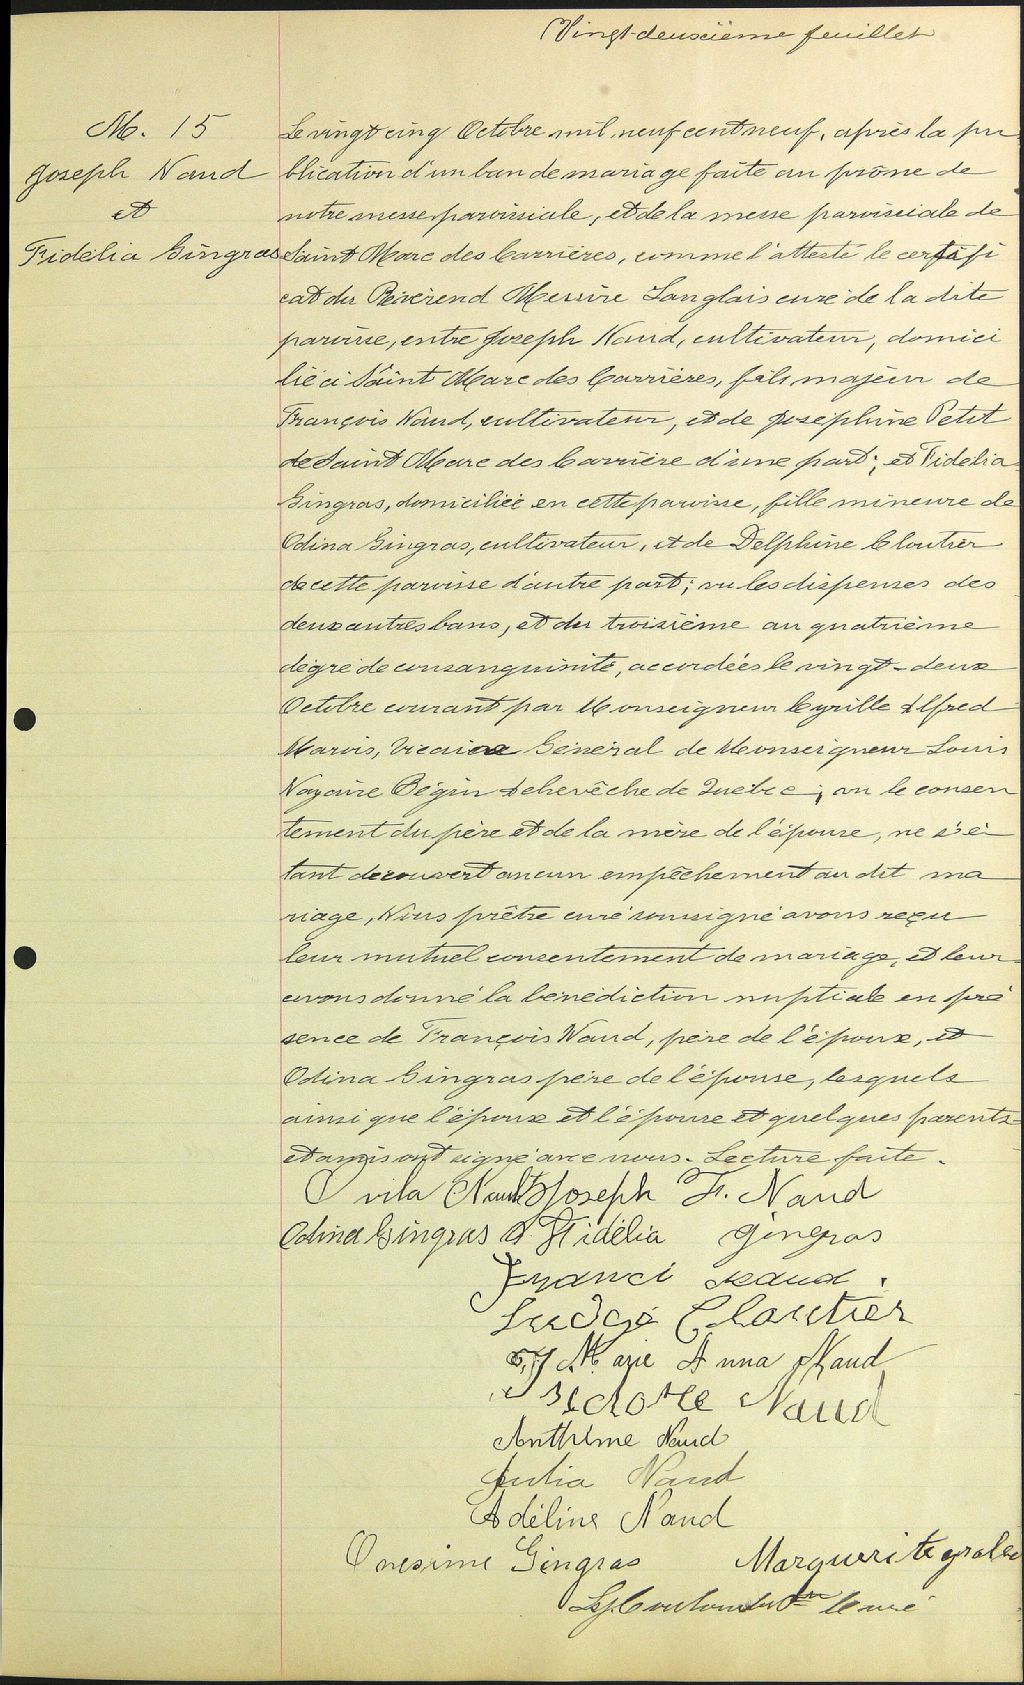 Vingt-deuxième feuillet
M. 15
Joseph Naud
et
Fidélia Gingras
Le vingt cinq Octobre mil neuf cent neuf, après la pu
blication d'un ban de mariage faite au prône de
notre messe paroissiale, et de la messe paroissiale de
Saint Marc des Carrières, comme l'atteste le certifi
cat du Révérend Messire Langlais curé de la dite
paroisse, entre Joseph Naud, cultivateur, domici
lié à Saint Marc des Carrières, fils majeur de
François Naud, cultivateur, et de Joséphine Petit
de Saint Marc des Carrière d'une part; et Fidelia
Gingras, domiciliée en cette paroisse, fille mineure de
Odina Gingras, cultivateur, et de Delphine Cloutier
de cette paroisse d'autre part; vu les dispenses des
deux autres bans, et du troisième au quatrième
dégré de consanguinité, accordées le vingt-deux
Octobre courant par Monseigneur Cyrille Alfred
Marois, Vicaire Général de Monseigneur Louis
Nazaire Bégin Archevêche de Québec; vu le consen
tement du père et de la mère de l'épouse, ne s'é
tant découvert aucun empêchement au dit ma
riage, Nous prêtre curé soussigné avons reçu
leur mutuel consentement de mariage, et leur
avons donné la bénédiction nuptiale en pré
sence de François Naud, père de l'époux, et
Odina Gingras père de l'épouse, lesquels
ainsi que l'époux et l'épouse et quelques parents
et amis ont signé avec nous. Lecture faite.
Ovila Naud Joseph F. Naud
Odina Gingras Fidélia Gingras
Franci Naud.
Cloutier
Marie Anna Naud
Isidore Naud
Anthime Naud
Julia Naud
Adéline Naud
Onesime Gingras Marguerite
Ptre Curé